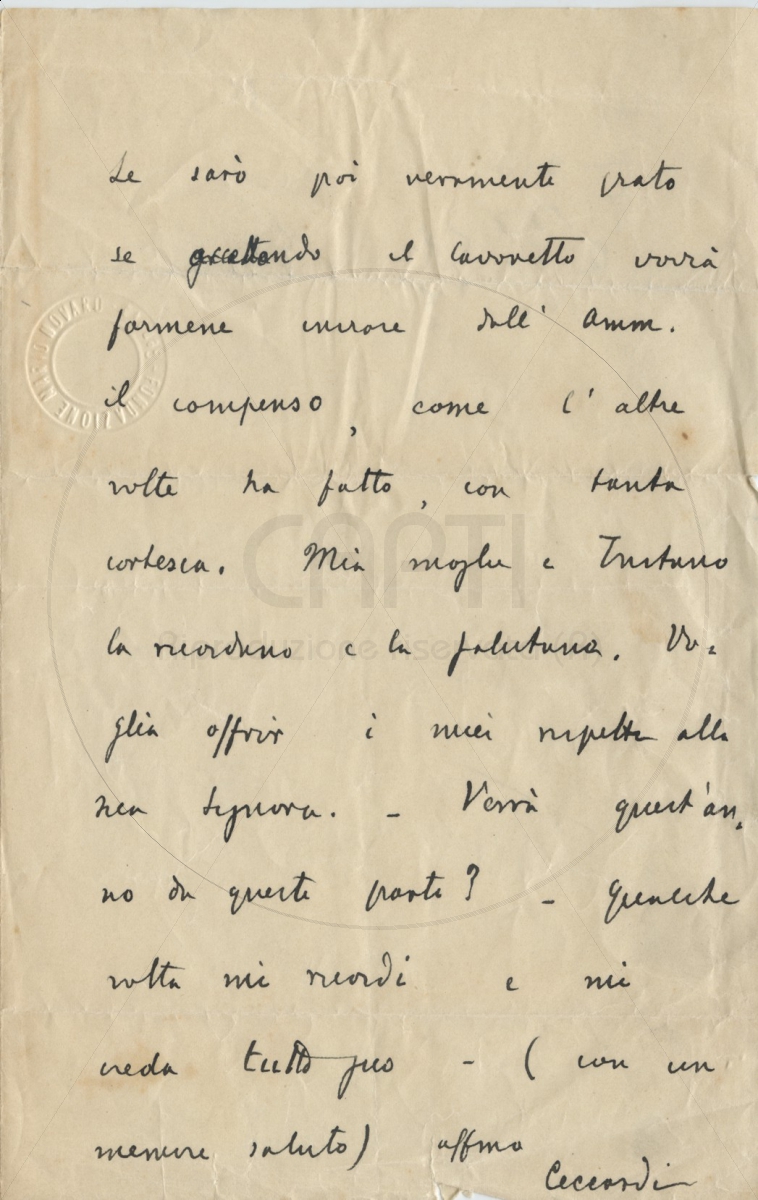 Le sarò poi veramente grato
se accettando il lavoretto vorrà
farmene inviare dall' Amm.
il compenso, come l' altre
volte ha fatto, con tanta
cortesia. Mia moglie e Tristano
la ricordano e la salutano. Vo-
glia offrir i miei rispetti alla
sua signora. - Verrà quest'an-
no da queste parti? - Qualche
volta mi ricordi e mi
creda tutto suo - ( con un
memore saluto) affmo
Ceccardi
FONDAZIONE MARIO NOVARO
CAPTI